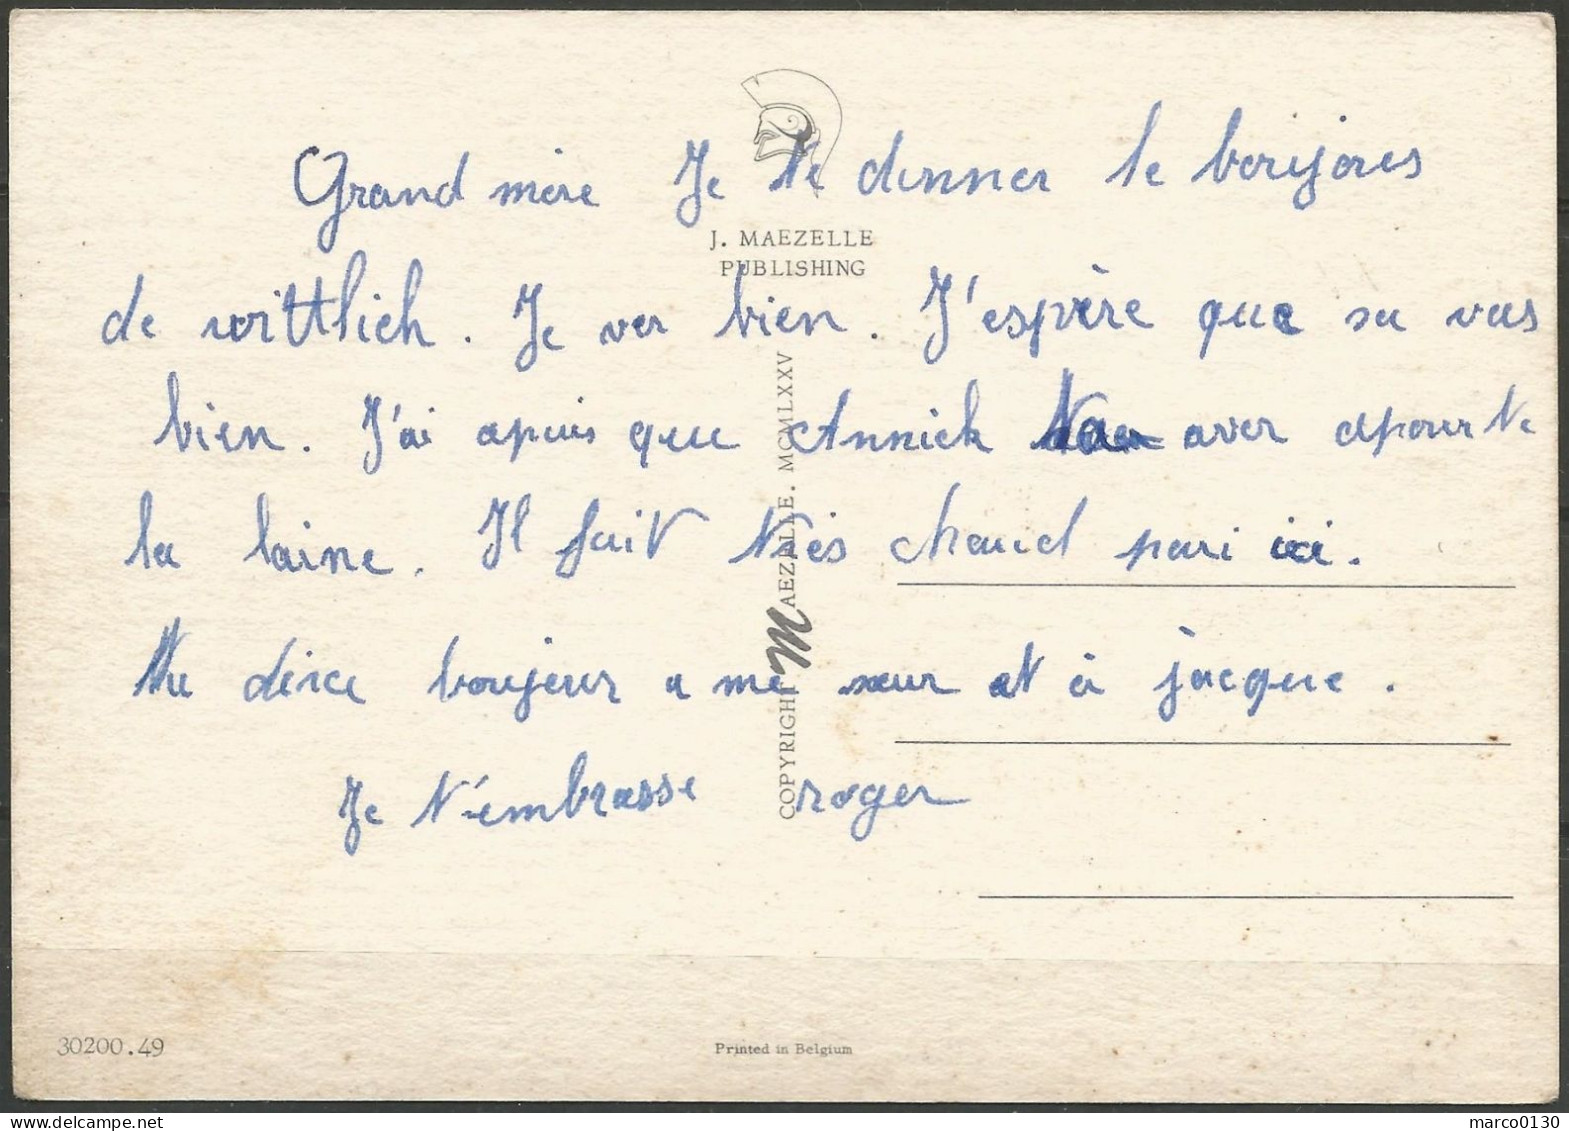 Grand mère Je te donner le bonjours
J. MAEZELLE
PUBLISHING
de wittlich. Je ver bien. J'espère que sa vas
bien. J'ai apuis que Annick aver apourte
la laine. Il fait très chaud pari ici.
tu dirce boujour a me sœur et à jacque.
Je t'embrasse roger
COPYRIGHT MAEZELLE. MCMLXXV
30200.49
Printed in Belgium
marco0130